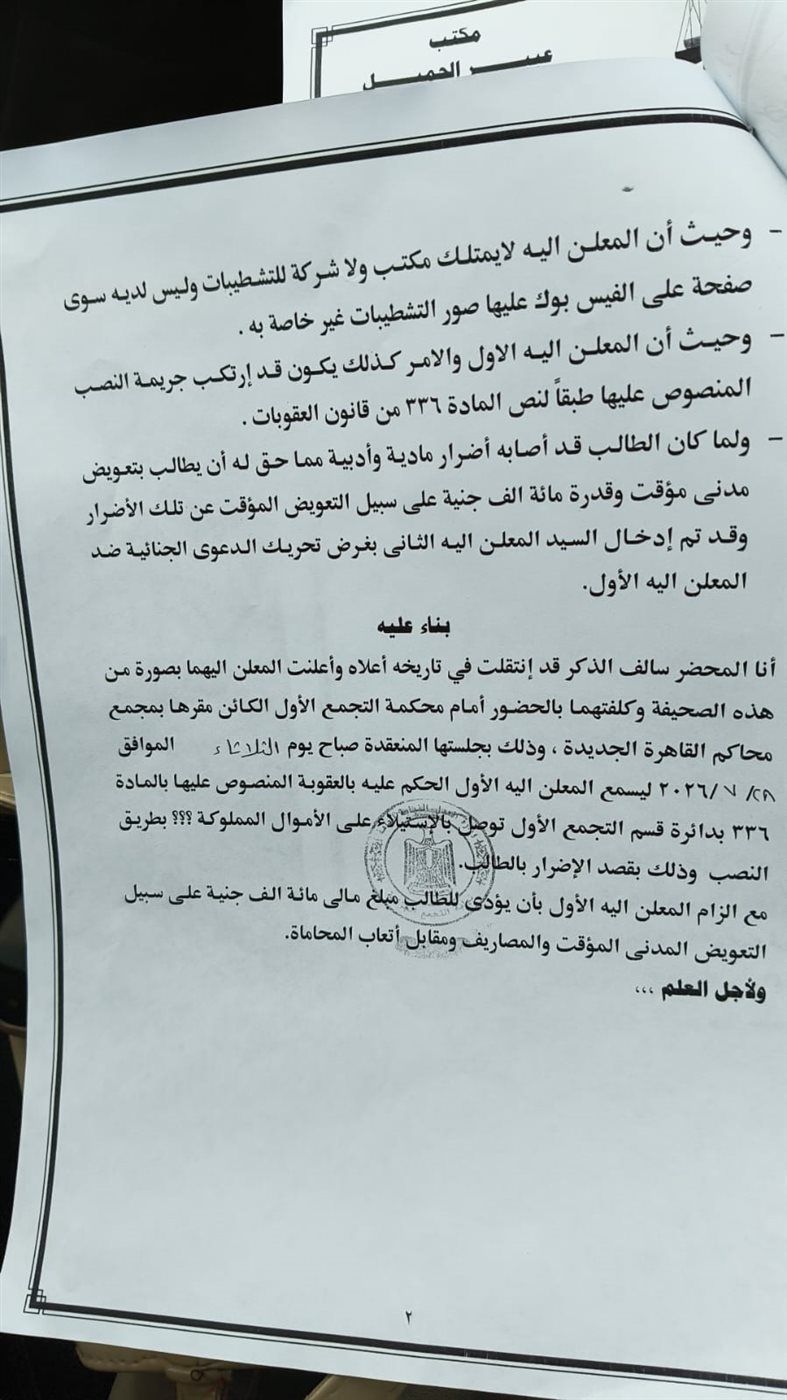 مكتب
عبير الجميل
- وحيث أن المعلن اليه لايمتلك مكتب ولا شركة للتشطيبات وليس لديه سوى
صفحة على الفيس بوك عليها صور التشطيبات غير خاصة به .
- وحيث أن المعلن اليه الاول والامر كذلك يكون قد إرتكب جريمة النصب
المنصوص عليها طبقاً لنص المادة ٣٣٦ من قانون العقوبات .
- ولما كان الطالب قد أصابه أضرار مادية وأدبية مما حق له أن يطالب بتعويض
مدنى مؤقت وقدرة مائة الف جنية على سبيل التعويض المؤقت عن تلك الأضرار
وقد تم إدخال السيد المعلن اليه الثانى بغرض تحريك الدعوى الجنائية ضد
المعلن اليه الأول.
بناء عليه
أنا المحضر سالف الذكر قد إنتقلت في تاريخه أعلاه وأعلنت المعلن اليهما بصورة من
هذه الصحيفة وكلفتهما بالحضور أمام محكمة التجمع الأول الكائن مقرها بمجمع
محاكم القاهرة الجديدة ، وذلك بجلستها المنعقدة صباح يوم الثلاثاء الموافق
٢٨/ ٧ /٢٠٢٦ ليسمع المعلن اليه الأول الحكم عليه بالعقوبة المنصوص عليها بالمادة
٣٣٦ بدائرة قسم التجمع الأول توصل بالإستيلاء على الأموال المملوكة ؟؟؟ بطريق
النصب وذلك بقصد الإضرار بالطالب.
مع الزام المعلن اليه الأول بأن يؤدى للطالب مبلغ مالى مائة الف جنية على سبيل
التعويض المدنى المؤقت والمصاريف ومقابل أتعاب المحاماة.
ولأجل العلم ...
٢